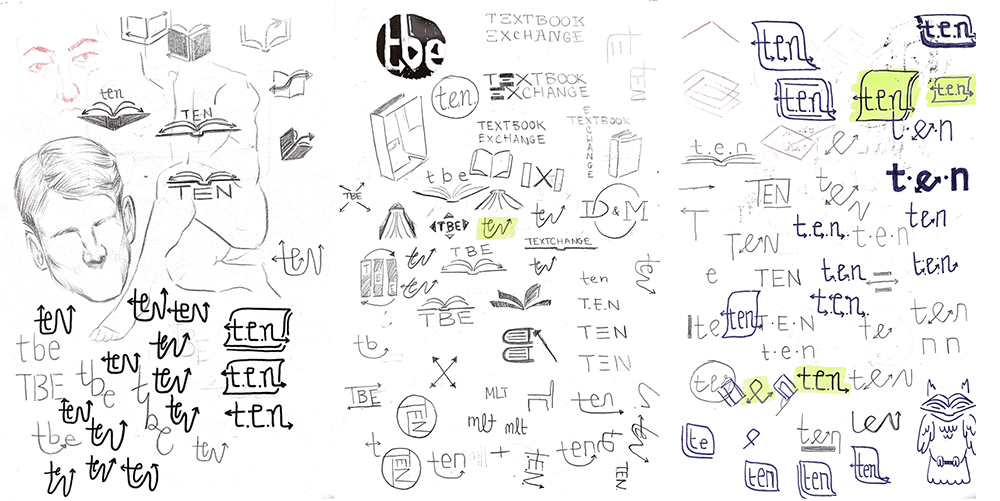 ten
TEN
TEN
teN
teN
teN
teN
teN
tbe
TBE
tbe
teN
tbe
tbe
teN
teN
teN
teN
teN
teN
teN
teN
teN
t.e.n.
t.e.n.
t.e.n.
tbe
TEXTBOOK
EXCHANGE
t.e.n.
TEXTBOOK
EXCHANGE
TEXTBOOK
EXCHANGE
TEXTBOOK
EXCHANGE
tbe
TBE
TBE
teN
teN
D&M
TEXTCHANGE
TBE
TBE
teN
teN
teN
TBE
ten
T.E.N
TEN
TEN
ten
tb
TBE
MLT
mlt
mlt
TEN
ten
t
TEN
ten
TEN
ten
ten
TEN
t.e.n
t.e.n
t.e.n
t.e.n
t.e.n
t.e.n
t.e.n
e
t.e.n
t.e.n
TEN
teN
T
TeN
t.e.n.
t.e.n
ten
e
TEN
t.e.n
t.e.n
ten
T.E.N
t.e.n.
te
te
ten
t.e.n
n n
ten
e
n
t.e.n
t.e.N
ten
teN
te
e
ten
ten
ten